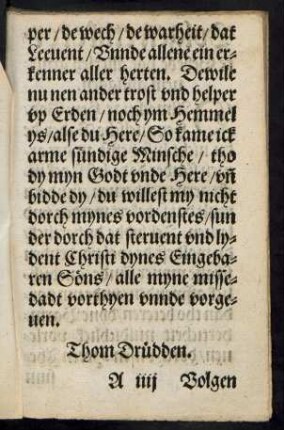 per / de wech / de warheit / dat
Leeuent / Vnnde allene ein er-
kenner aller herten. Dewile
nu nen ander trost vnd helper
vp Erden / noch ym Hemmel
ys / alse du Here / So kame ick
arme sündige Minsche / tho
dy myn Godt vnde Here / vn̄
bidde dy / du willest my nicht
dorch mynes vordenstes / sun
der dorch dat steruent vnd ly-
dent Christi dynes Eingeba-
ren Söns / alle myne misse-
dadt vorthyen vnnde vorge-
uen.
Thom Drüdden.
A iiij Volgen